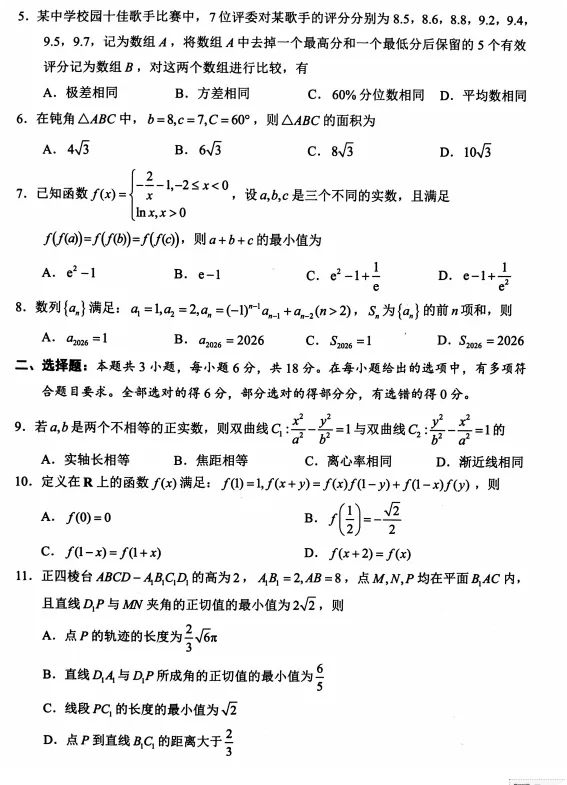 5．某中学校园十佳歌手比赛中，7 位评委对某歌手的评分分别为 8.5，8.6，8.8，9.2，9.4，
9.5，9.7，记为数组 A，将数组 A 中去掉一个最高分和一个最低分后保留的 5 个有效
评分记为数组 B，对这两个数组进行比较，有
A．极差相同 B．方差相同 C．60% 分位数相同 D．平均数相同
6．在钝角 △ABC 中，b = 8, c = 7, C = 60°，则 △ABC 的面积为
A．4√3 B．6√3 C．8√3 D．10√3
7．已知函数 f(x) = { -2/x - 1, -2 ≤ x < 0; ln x, x > 0，设 a, b, c 是三个不同的实数，且满足
f(f(a)) = f(f(b)) = f(f(c))，则 a + b + c 的最小值为
A．e² - 1 B．e - 1 C．e² - 1 + 1/e D．e - 1 + 1/e²
8．数列 {aₙ} 满足：a₁ = 1, a₂ = 2, aₙ = (-1)ⁿ⁻¹aₙ₋₁ + aₙ₋₂ (n > 2)，Sₙ 为 {aₙ} 的前 n 项和，则
A．a₂₀₂₆ = 1 B．a₂₀₂₆ = 2026 C．S₂₀₂₆ = 1 D．S₂₀₂₆ = 2026
二、选择题：本题共 3 小题，每小题 6 分，共 18 分。在每小题给出的选项中，有多项符
合题目要求。全部选对的得 6 分，部分选对的得部分分，有选错的得 0 分。
9．若 a, b 是两个不相等的正实数，则双曲线 C₁: x²/a² - y²/b² = 1 与双曲线 C₂: y²/b² - x²/a² = 1 的
A．实轴长相等 B．焦距相等 C．离心率相同 D．渐近线相同
10．定义在 R 上的函数 f(x) 满足：f(1) = 1, f(x + y) = f(x)f(1 - y) + f(1 - x)f(y)，则
A．f(0) = 0 B．f(1/2) = -√2/2
C．f(1 - x) = f(1 + x) D．f(x + 2) = f(x)
11．正四棱台 ABCD - A₁B₁C₁D₁ 的高为 2，A₁B₁ = 2, AB = 8，点 M, N, P 均在平面 B₁AC 内，
且直线 D₁P 与 MN 夹角的正切值的最小值为 2√2，则
A．点 P 的轨迹的长度为 2/3 √6π
B．直线 D₁A₁ 与 D₁P 所成角的正切值的最小值为 6/5
C．线段 PC₁ 的长度的最小值为 √2
D．点 P 到直线 B₁C₁ 的距离大于 2/3